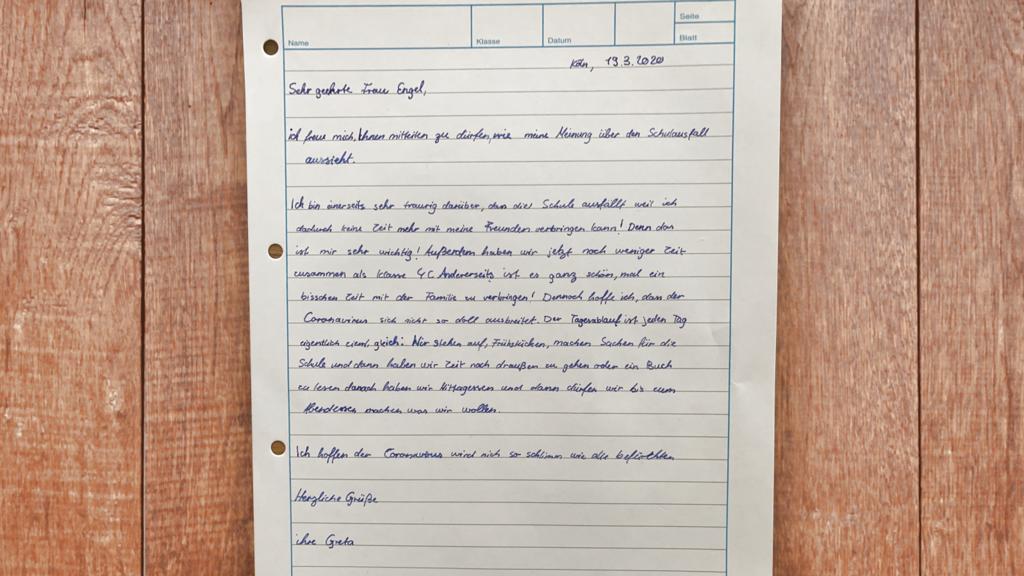 Seite
Name Klasse Datum Blatt
Köln, 19.3.2020
Sehr geehrte Frau Engel,
ich freue mich, Ihnen mitteilen zu dürfen, wie meine Meinung über den Schulausfall
aussieht.
Ich bin einerseits sehr traurig darüber, dass die Schule ausfällt weil ich
dadurch keine Zeit mehr mit meine Freunden verbringen kann! Denn das
ist mir sehr wichtig! Außerdem haben wir jetzt noch weniger Zeit
zusammen als Klasse 4C. Andererseits ist es ganz schön, mal ein
bisschen Zeit mit der Familie zu verbringen! Dennoch hoffe ich, dass der
Coronavirus sich nicht so doll ausbreitet. Der Tagesablauf ist jeden Tag
eigentlich gleich: Wir stehen auf, Frühstücken, machen Sachen für die
Schule und dann haben wir Zeit nach draußen zu gehen oder ein Buch
zu lesen danach haben wir Mittagessen und dann dürfen wir bis zum
Abendessen machen was wir wollen.
Ich hoffen der Coronavirus wird nich so schlimm wie alle befürchten
Herzliche Grüße
ihre Greta